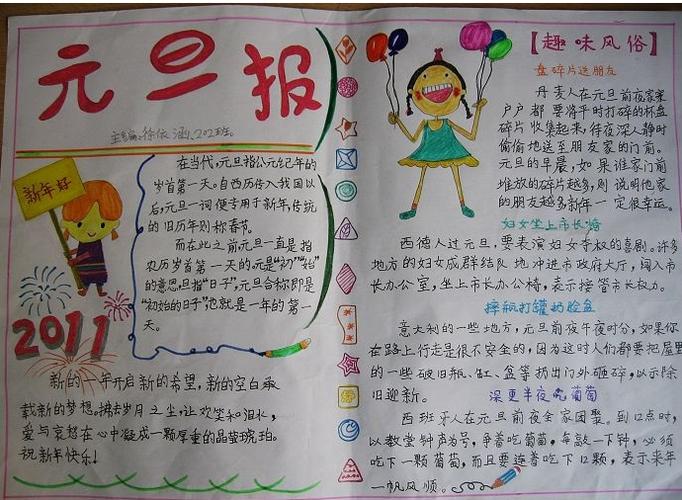 元旦报
主编:徐依涵、202班。
新年好
2011
在当代,元旦指公元纪年的
岁首第一天。自西历传入我国以
后,元旦一词便专用于新年,传统
的旧历年则称春节。
而在此之前元旦一直是指
农历岁首第一天的元是“初”“始”
的意思旦指“日子”,元旦合称即是
“初始的日子”也就是一年的第一
天。
新的一年开启新的希望,新的空白承
载新的梦想。拂去岁月之尘,让欢笑和泪水,
爱与哀愁在心中凝成一颗厚重的晶莹琥珀。
祝新年快乐!
【趣味风俗】
盘碎片送朋友
丹麦人在元旦前夜家家
户户都要将平时打碎的杯盘
碎片收集起来,待夜深人静时
偷偷地送至朋友家的门前。
元旦的早晨,如果谁家门前
堆放的碎片越多,则说明他家
的朋友越多新年一定很幸运。
妇女坐上市长椅
西德人过元旦,要表演妇女夺权的喜剧。许多
地方的妇女成群结队地冲进市政府大厅,闯入市
长办公室,坐上市长办公椅,表示接管市长权力。
摔瓶打罐扔脸盆
意大利的一些地方,元旦前夜午夜时分,如果你
在路上行走是很不安全的,因为这时人们都要把屋里
的一些破旧瓶、缸、盆等扔出门外砸碎,以示除
旧迎新。
深更半夜吃葡萄
西班牙人在元旦前夜全家团聚。到12点时,
以教堂钟声为号,争着吃葡萄,每敲一下钟,必须
吃下一颗葡萄,而且要连着吃下12颗,表示来年
一帆风顺。